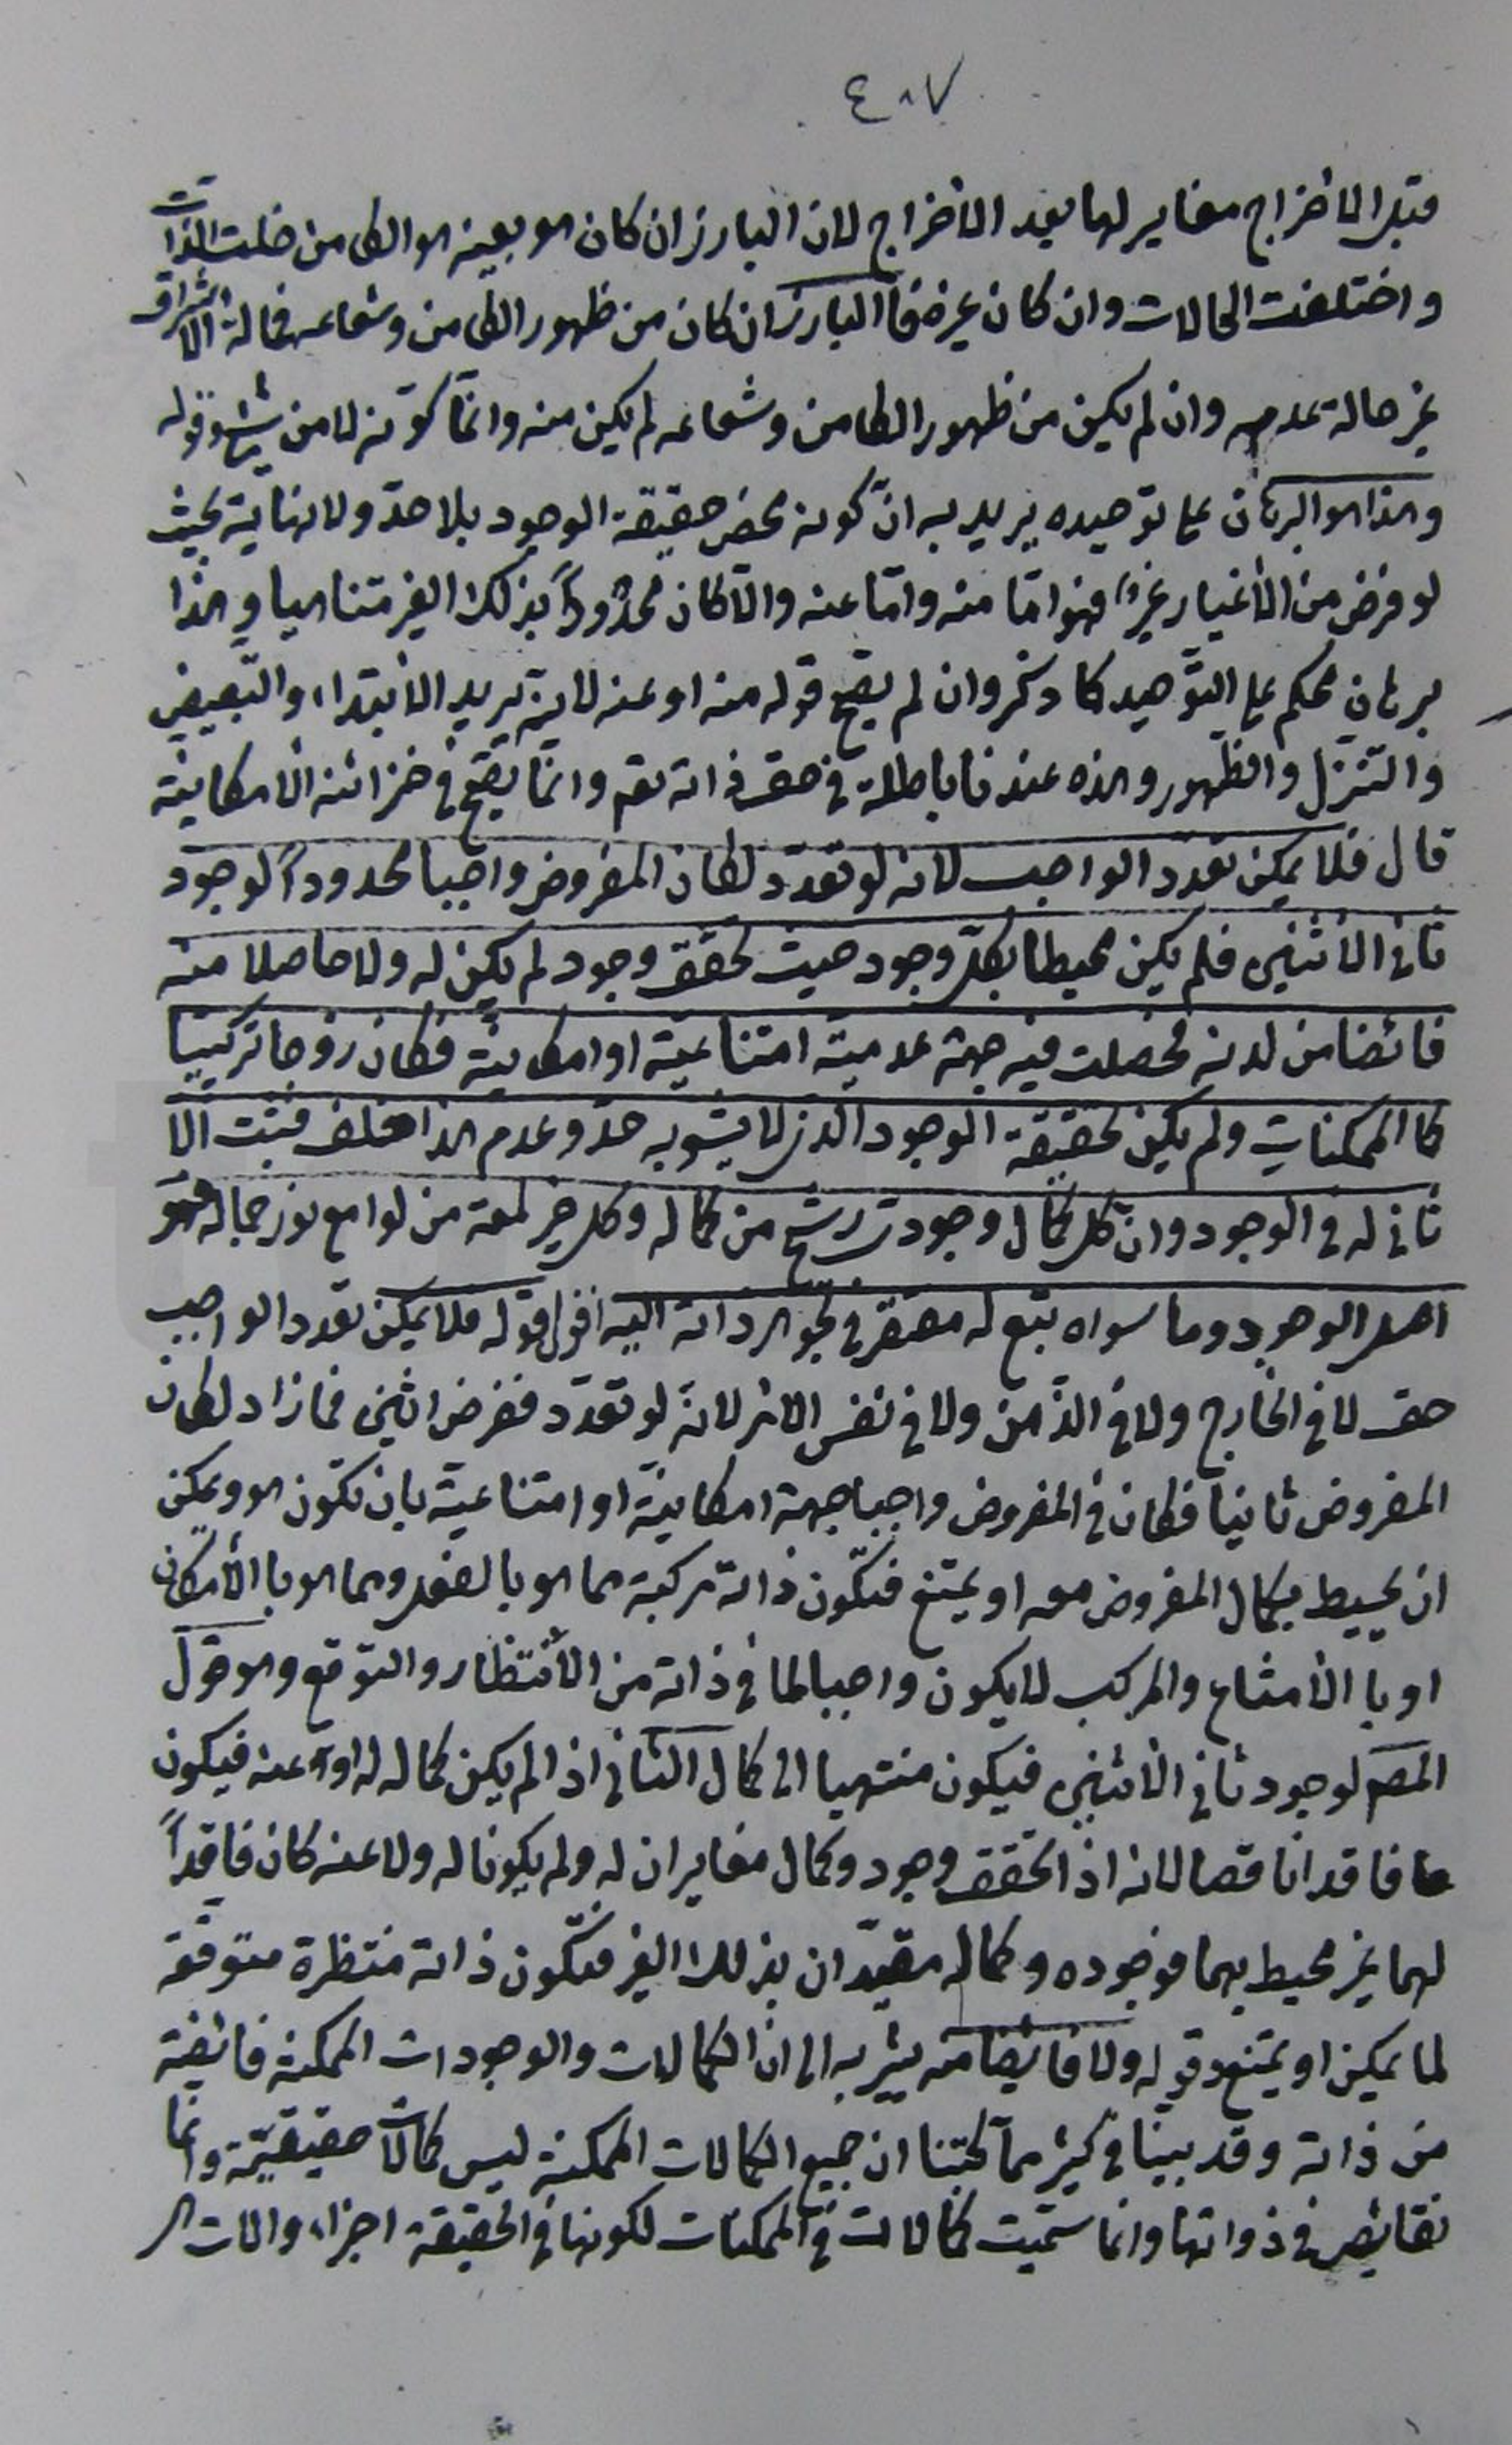 ٤٠٧
قبل الأخراج مغاير لها بعد الأخراج لان البارز ان كان هو بعينه هو الكامن خلت الذات
واختلفت الحالات وان كان غيره فالبارز ان كان من ظهور الكامن وشعاعه فحالة الاشراق
غير حالة عدمه وان لم يكن من ظهور الكامن وشعاعه لم يكن منه وانما كونه لا من شئ وقوله
وهذا هو البرهان على توحيده يريد به انّ كونه محض حقيقة الوجود بلا حدّ ولا نهاية بحيث
لو فرض من الأغيار غيره فهو امّا منه وامّا عنه والّا كان محدوداً بذلك الغير متناهيا وهذا
برهان محكم على التّوحيد كما ذكر وان لم يصح قوله منه او عنه لانه يريد الأبتداء والتبعيض
والتنزل والظهور وهذه عندنا باطلة في حق ذاته تعم وانّما يصح في خزائنه الأمكانية
قال فلا يمكن تعدد الواجب لانه لو تعدّد لكان المفروض واجبا محدوداً لوجود
ثاني الأثنين فلم يكن محيطا بكلّ وجود حيث تحقق وجود لم يكن له ولا حاصلا منه
فائضا من لدنه فحصلت فيه جهة عدمية امتناعية او امكانية فكان زوجا تركيبيا
كالممكنات ولم يكن بحقيقة الوجود الذي لا يشوبه حدّ وعدم هذا خلف فثبت الّا
ثاني له في الوجود وان كل كمال وجود ترشح من كماله وكل خير لمعة من لوامع نور جماله فهو
اصل الوجود وما سواه تبع له مفتقر في تجوهر ذاته اليه اقول قوله فلا يمكن تعدد الواجب
حق لا في الخارج ولا في الذّهن ولا في نفس الامر لانه لو تعدّد ففرض اثنين فما زاد لكان
المفروض ثانياً فكان في المفروض واجبا جهة امكانيّة او امتناعية بان تكون هو ويمكن
ان يحيط بكمال المفروض معه او يمتنع فتكّون ذاته مركبة مما هو بالفعل ومما هو بالأمكان
او بالأمتناع والمركب لا يكون واجبا لما في ذاته من الأنتظار والتوقع وهو قول
المصم لوجود ثاني الأثنين فيكون منتهيا الى كمال الثاني اذا لم يكن كماله له او عنه فيكون
فاقدا ناقصا لانه اذا تحقق وجود وكمال مغايران له ولم يكونا له ولا عنه كان فاقداً
لهما غير محيط بهما فوجوده وكماله مقيّدان بذلك الغير فتكّون ذاته منتظرة متوقعة
لما يمكن او يمتنع وقوله ولا فائضا منه يشير به الى انّ الكمالات والوجودات الممكنة فائضة
من ذاته وقد بينا في كثير مما كتبنا ان جميع الكمالات الممكنة ليس كمالات حقيقيّة وانما
نقائص في ذواتها وانما سمّيت كمالات في الممكنات لكونها في الحقيقة اجزاء والات